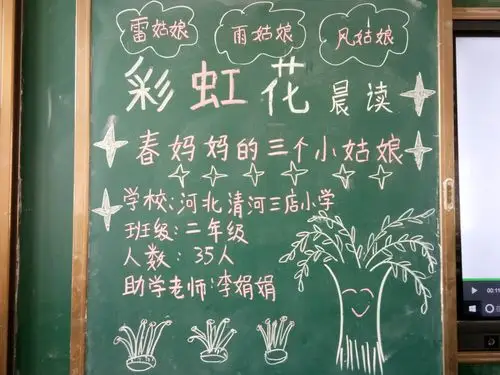 雷姑娘 雨姑娘 风姑娘
彩虹花晨读
春妈妈的三个小姑娘
学校:河北清河三店小学
班级:二年级
人数:35人
助学老师:李娟娟
00:11